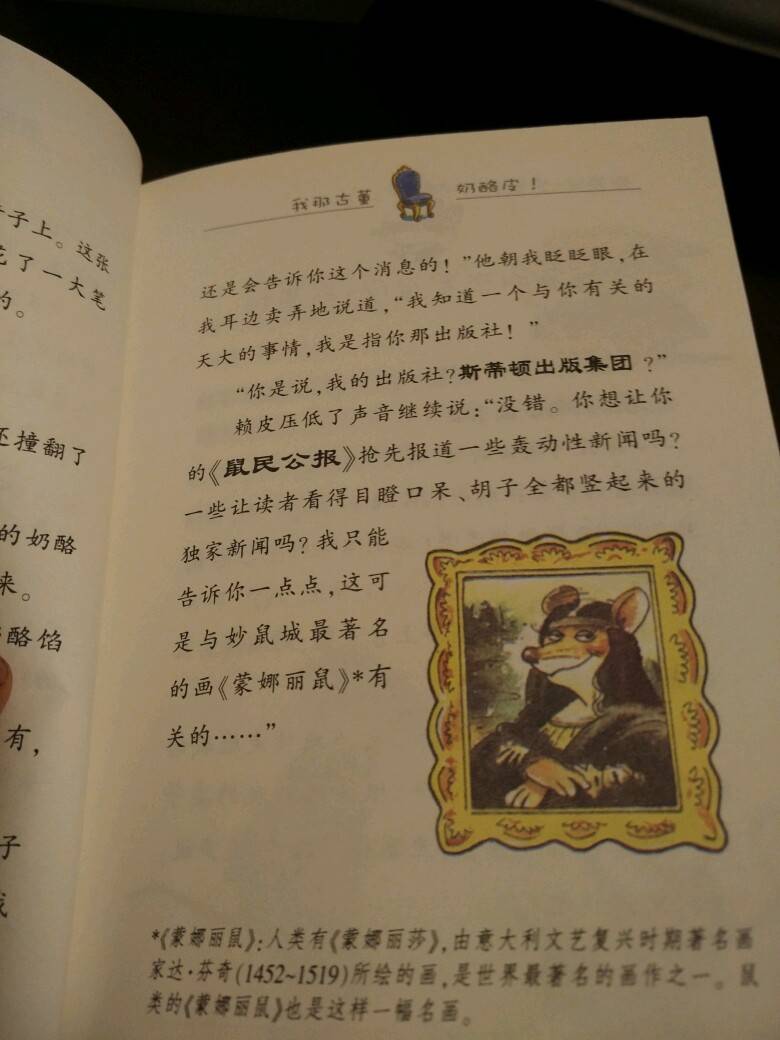 子上。这张
花了一大笔
的。
还撞翻了
的奶酪
来。
酪馅
有，
子
我那古董 奶酪皮！
还是会告诉你这个消息的！”他朝我眨眨眼，在
我耳边卖弄地说道，“我知道一个与你有关的
天大的事情，我是指你那出版社！”
“你是说，我的出版社？斯蒂顿出版集团？”
赖皮压低了声音继续说：“没错。你想让你
的《鼠民公报》抢先报道一些轰动性新闻吗？
一些让读者看得目瞪口呆、胡子全都竖起来的
独家新闻吗？我只能
告诉你一点点，这可
是与妙鼠城最著名
的画《蒙娜丽鼠》*有
关的……”
*《蒙娜丽鼠》：人类有《蒙娜丽莎》，由意大利文艺复兴时期著名画
家达·芬奇(1452~1519)所绘的画，是世界最著名的画作之一。鼠
类的《蒙娜丽鼠》也是这样一幅名画。